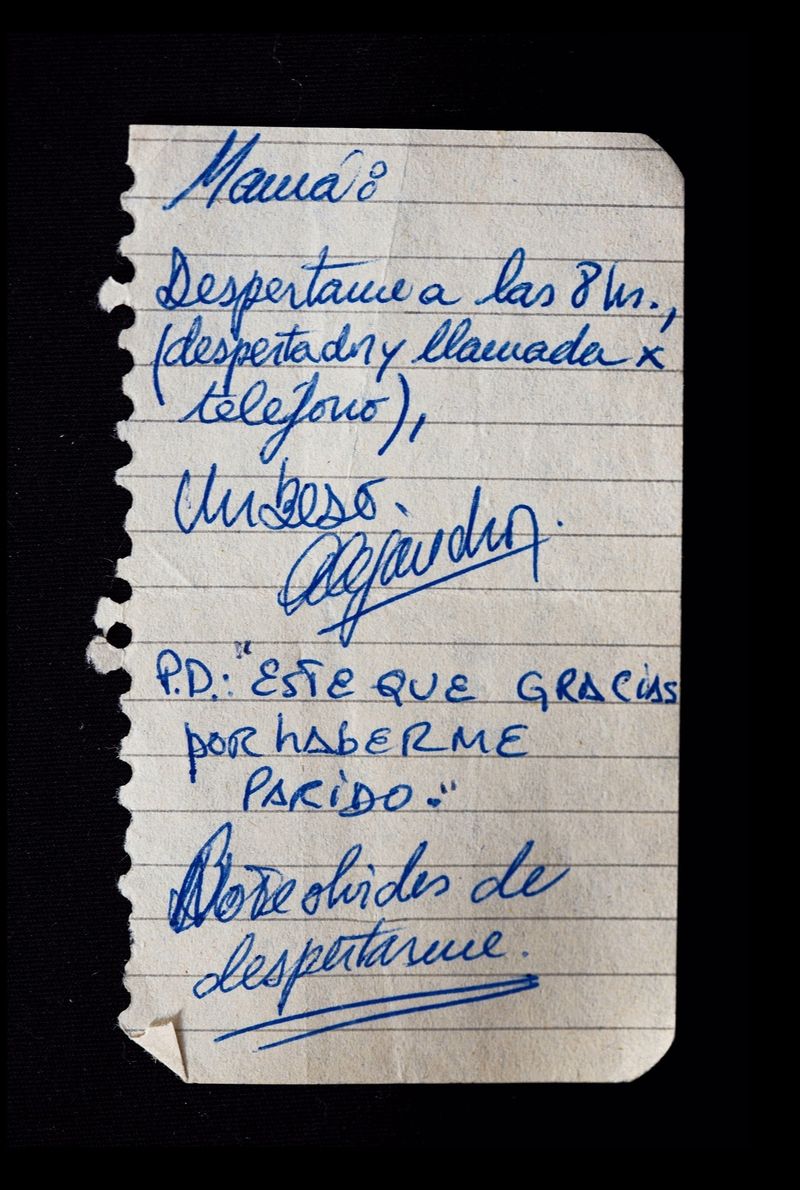 Mamá:
Despertame a las 8 hs.,
(despertador y llamada x
teléfono),
Un beso.
Alejandro.
P.D.: "ESTE QUE GRACIAS
POR HABERME
PARIDO."
No te olvides de
despertarme.